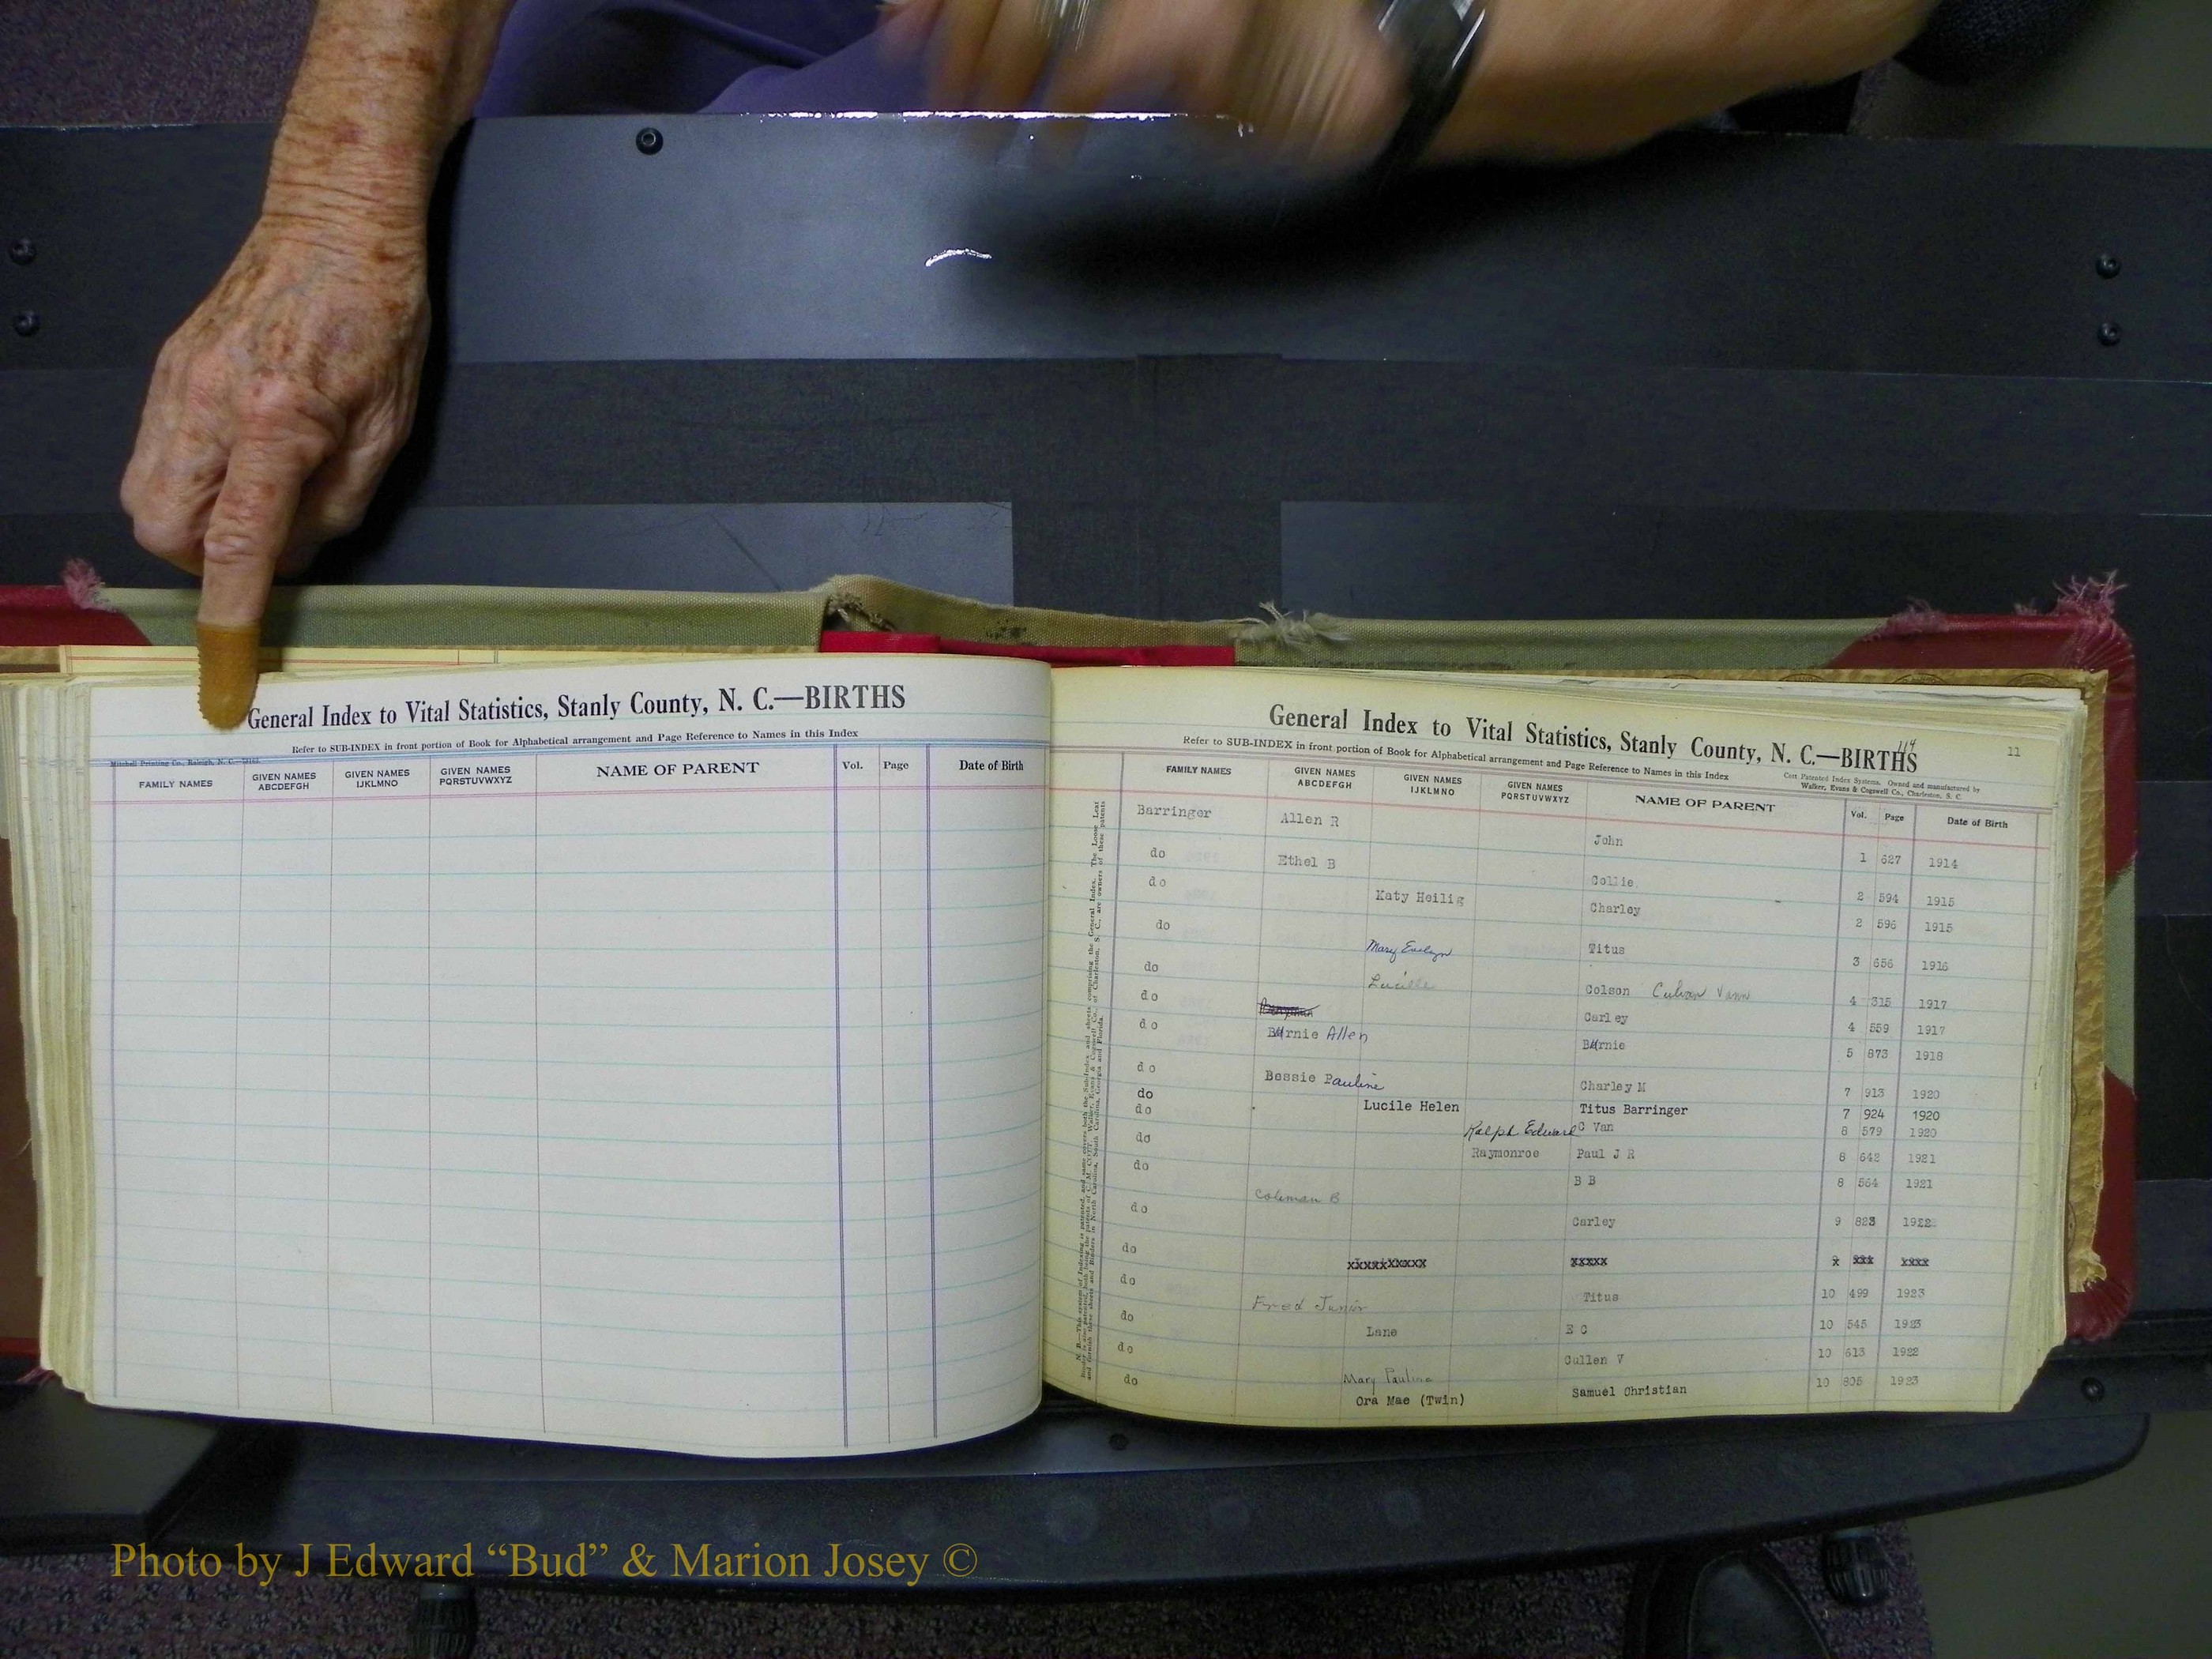 General Index to Vital Statistics, Stanly County, N. C.—BIRTHS
Refer to SUB-INDEX in front portion of Book for Alphabetical arrangement and Page Reference to Names in this Index
Mitchell Printing Co., Raleigh, N. C.
FAMILY NAMES GIVEN NAMES ABCDEFGH GIVEN NAMES IJKLMNO GIVEN NAMES PQRSTUVWXYZ NAME OF PARENT Vol. Page Date of Birth
114
11
General Index to Vital Statistics, Stanly County, N. C.—BIRTHS
Refer to SUB-INDEX in front portion of Book for Alphabetical arrangement and Page Reference to Names in this Index
Cott Patented Index Systems. Owned and manufactured by
Walker, Evans & Cogswell Co., Charleston, S. C.
FAMILY NAMES GIVEN NAMES ABCDEFGH GIVEN NAMES IJKLMNO GIVEN NAMES PQRSTUVWXYZ NAME OF PARENT Vol. Page Date of Birth
Barringer Allen R John 1 627 1914
do Ethel B Collie 2 594 1915
do Katy Heilig Charley 2 596 1915
do Mary Evelyn Titus 3 656 1916
do Lucille Colson Vann 4 315 1917
do Carley 4 559 1917
do Burnie Allen Burnie 5 873 1918
do Bessie Pauline Charley M 7 913 1920
do Lucile Helen Titus Barringer 7 924 1920
do Ralph Edward C Van 8 579 1920
do Raymonroe Paul J R 8 642 1921
do B B 8 564 1921
do Coleman B Carley 9 823 1922
do xxxxxxxxxx xxxxx x xxx xxxx
do Fred Junior Titus 10 499 1923
do Lane E C 10 545 1923
do Mary Pauline Cullen V 10 613 1922
do Ora Mae (Twin) Samuel Christian 10 805 1923
Photo by J Edward “Bud” & Marion Josey ©